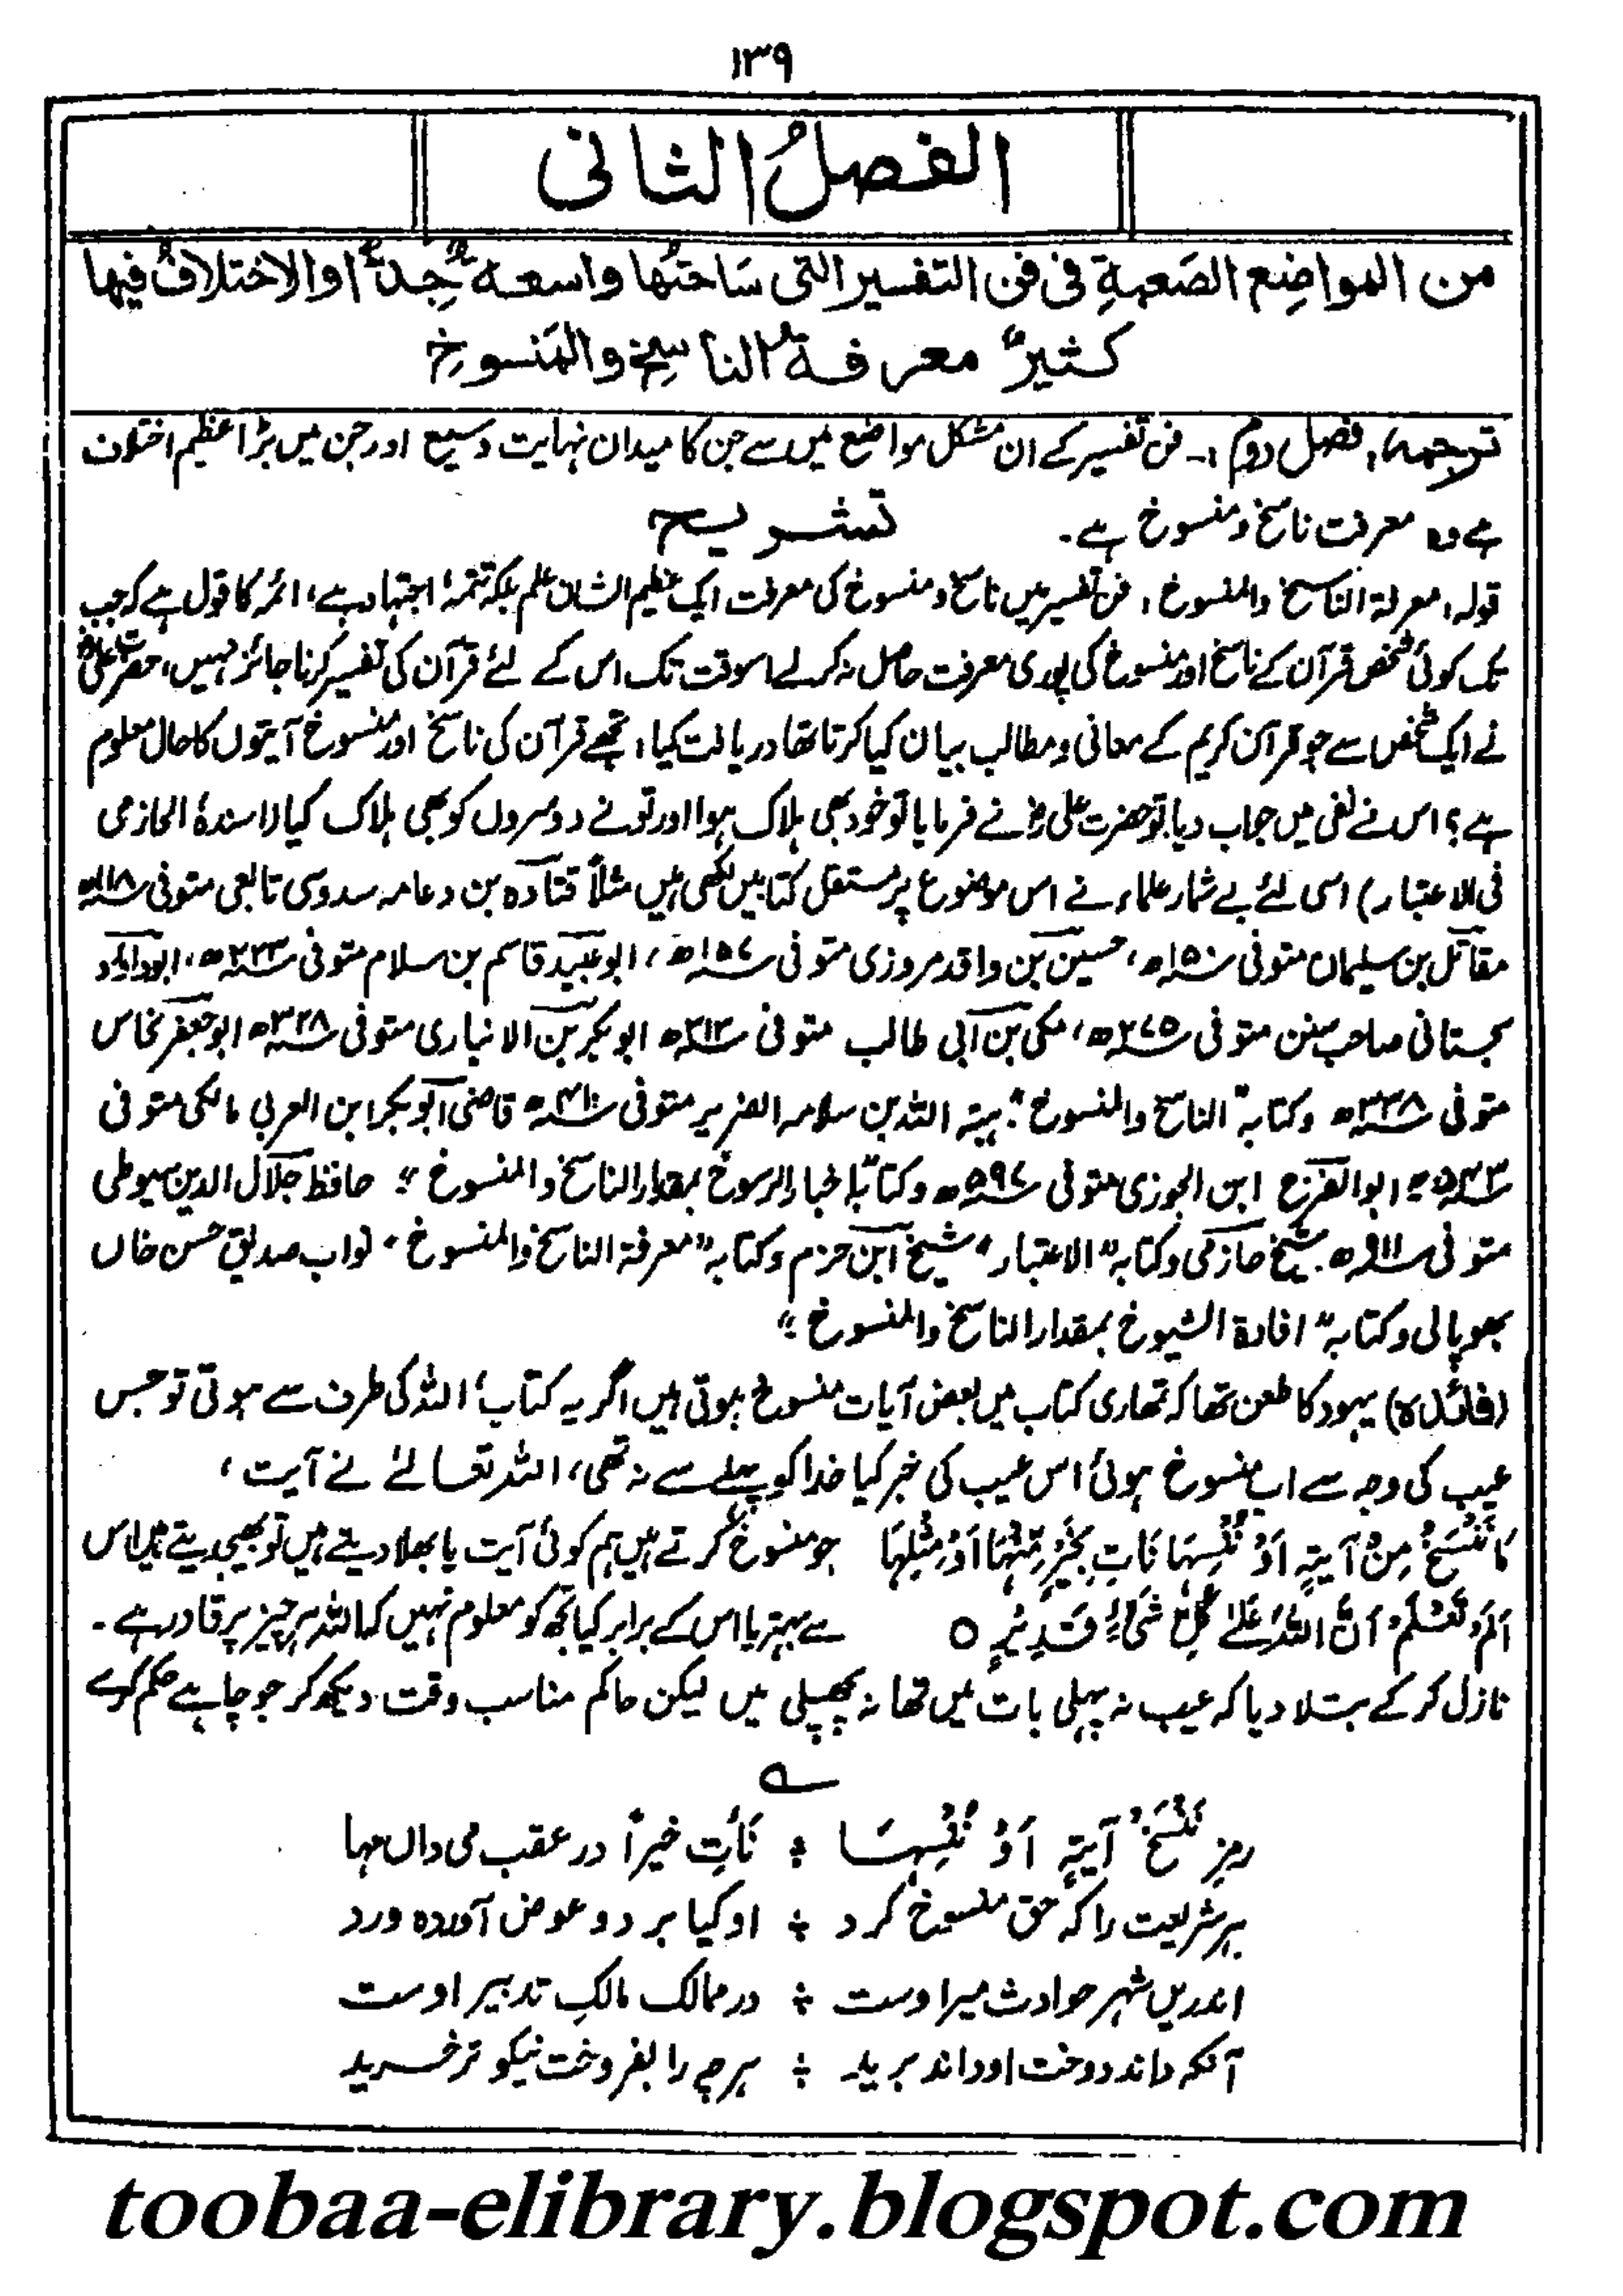 ۱۳۹
الفصلُ الثانی
من المواضِع الصَعبةِ فی فن التفسیر التی سَاحتُها واسعة جِدًّا والاختلافُ فیها
کثیرٌ معرفةُ الناسِخِ والمَنسوخِ
ترجمہ، فصل دوم :۔ فن تفسیر کے ان مشکل مواضع میں سے جن کا میدان نہایت وسیع اور جن میں بڑا عظیم اختلاف
ہے وہ معرفت ناسخ و منسوخ ہے۔ تشریح
قولہ، معرفۃ الناسخ والمنسوخ، فن تفسیر میں ناسخ و منسوخ کی معرفت ایک عظیم الشان علم بلکہ تتمۂ اجتہاد ہے، ائمہ کا قول ہے کہ جب
تک کوئی شخص قرآن کے ناسخ اور منسوخ کی پوری معرفت حاصل نہ کرلے اسوقت تک اس کے لئے قرآن کی تفسیر کرنا جائز نہیں، حضرت علیؓ
نے ایک شخص سے جو قرآن کریم کے معانی و مطالب بیان کیا کرتا تھا دریافت کیا، تجھے قرآن کی ناسخ اور منسوخ آیتوں کا حال معلوم
ہے؟ اس نے نفی میں جواب دیا تو حضرت علیؓ نے فرمایا تو خود بھی ہلاک ہوا اور تونے دوسروں کو بھی ہلاک کیا (اسندہ الحازمی
فی الاعتبار) اسی لئے بے شمار علماء نے اس موضوع پر مستقل کتابیں لکھی ہیں مثلاً قتادہ بن دعامہ سدوسی تابعی متوفی ۱۱۸ھ
مقاتل بن سلیمان متوفی ۱۵۰ھ، حسین بن واقد مروزی متوفی ۱۵۷ھ، ابو عبید قاسم بن سلام متوفی ۲۲۳ھ، ابوداؤد
سجستانی صاحب سنن متوفی ۲۷۵ھ، مکی بن ابی طالب متوفی ۳۱۳ھ ابوبکر بن الانباری متوفی ۳۲۸ھ ابوجعفر نحاس
متوفی ۳۳۸ھ وکتابہ "الناسخ والمنسوخ" ہبۃ اللہ بن سلامہ الضریر متوفی ۴۱۰ھ قاضی ابوبکر ابن العربی مالکی متوفی
۵۴۳ھ ابوالفرج ابن الجوزی متوفی ۵۹۷ھ وکتابہ "اخبار الرسوخ بمقدار الناسخ والمنسوخ" حافظ جلال الدین سیوطی
متوفی ۹۱۱ھ شیخ حازمی وکتابہ "الاعتبار" شیخ ابن حزم وکتابہ "معرفۃ الناسخ والمنسوخ" نواب صدیق حسن خاں
بھوپالی وکتابہ "افادۃ الشیوخ بمقدار الناسخ والمنسوخ"
(فائدہ) یہود کا طعن تھا کہ تمھاری کتاب میں بعض آیات منسوخ ہوتی ہیں اگر یہ کتاب اللہ کی طرف سے ہوتی تو جس
عیب کی وجہ سے اب منسوخ ہوئی اس عیب کی خبر کیا خدا کو پہلے سے نہ تھی، اللہ تعالےٰ نے آیت،
مَا نَنْسَخْ مِنْ آیَةٍ اَوْ نُنْسِهَا نَأتِ بِخَیْرٍ مِّنْهَا اَوْ مِثْلِهَا جو منسوخ کرتے ہیں ہم کوئی آیت یا بھلا دیتے ہیں تو بھیجدیتے ہیں اس
اَلَمْ تَعْلَمْ اَنَّ اللّٰهَ عَلٰی کُلِّ شَیْءٍ قَدِیْرٌ ○ سے بہتر یا اس کے برابر کیا تجھ کو معلوم نہیں کہ اللہ ہر چیز پر قادر ہے۔
نازل کرکے بتلا دیا کہ عیب نہ پہلی بات میں تھا نہ پچھلی میں لیکن حاکم مناسب وقت دیکھ کر جو چاہے حکم کرے
؎
رمز نَنْسَخْ آیَةٍ اَوْ نُنْسِهَا ÷ نَأتِ خیراً در عقب می داں مہا
ہر شریعت را کہ حق منسوخ کرد ÷ او گیا برد و عوض آوردہ ورد
اندریں شہر حوادث میر اوست ÷ در ممالک مالکِ تدبیر اوست
آنکہ داند دوخت او داند برید ÷ ہر چہ را بفروخت نیکو تر خرید
toobaa-elibrary.blogspot.com